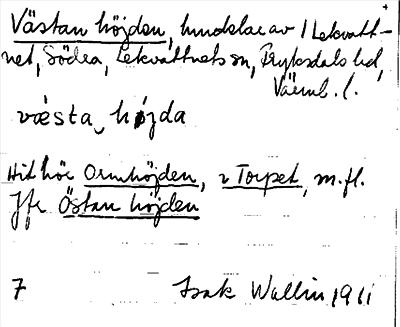 Västan höjden, hundelar av / Lekvatt-
net, Södra, Lekvattnets sn, Fryksdals hd,
Värml. l.
væsta, højda
Hit hör Ormhöjden, o Torpet, m.fl.
Jfr Östan höjden
7 Isak Wallin 1911